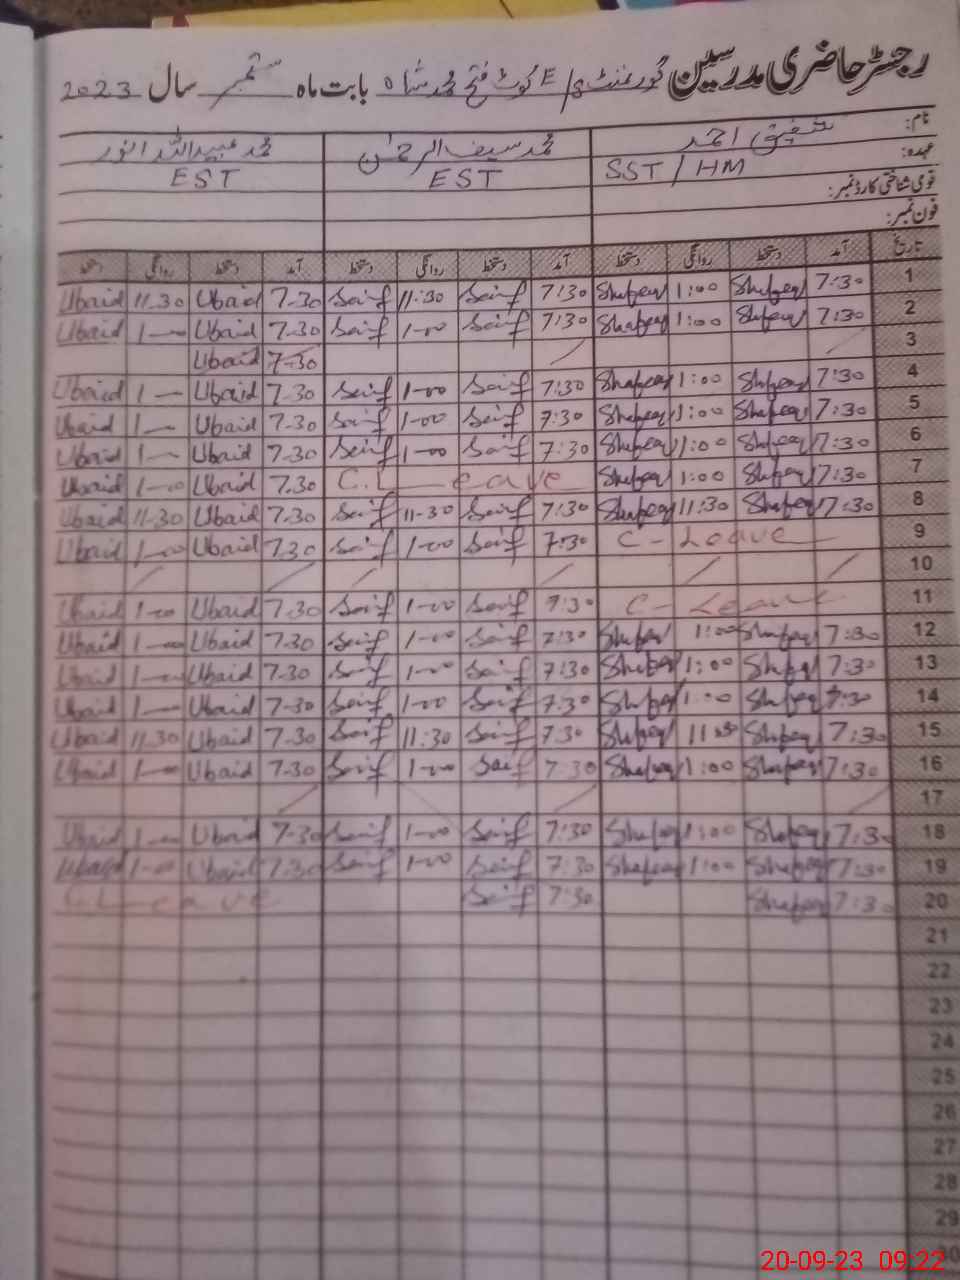 رجسٹر حاضری مدرسین گورنمنٹ E/S کوٹ فتح محمد شاہ بابت ماہ ستمبر سال 2023
نام: شفیق احمد محمد سیف الرحمٰن محمد عبیداللہ انور
عہدہ: SST / HM EST EST
قومی شناختی کارڈ نمبر:
فون نمبر:
تاریخ آمد دستخط روانگی دستخط آمد دستخط روانگی دستخط آمد دستخط روانگی دستخط
1 7:30 Shafeeq 1:00 Shafeeq 7:30 Saif 11:30 Saif 7-30 Ubaid 11.30 Ubaid
2 7:30 Shafeeq 1:00 Shafeeq 7:30 Saif 1-00 Saif 7-30 Ubaid 1-00 Ubaid
3 7-30 Ubaid
4 7:30 Shafeeq 1:00 Shafeeq 7:30 Saif 1-00 Saif 7-30 Ubaid 1-00 Ubaid
5 7:30 Shafeeq 1:00 Shafeeq 7:30 Saif 1-00 Saif 7-30 Ubaid 1-00 Ubaid
6 7:30 Shafeeq 1:00 Shafeeq 7:30 Saif 1-00 Saif 7-30 Ubaid 1-00 Ubaid
7 7:30 Shafeeq 1:00 Shafeeq C.Leave 7.30 Ubaid 1-00 Ubaid
8 7:30 Shafeeq 11:30 Shafeeq 7:30 Saif 11-30 Saif 7-30 Ubaid 11-30 Ubaid
9 C-Leave 7:30 Saif 1-00 Saif 7.30 Ubaid 1-00 Ubaid
10
11 C-Leave 7:30 Saif 1-00 Saif 7-30 Ubaid 1-00 Ubaid
12 7:30 Shafeeq 1:00 Shafeeq 7:30 Saif 1-00 Saif 7-30 Ubaid 1-00 Ubaid
13 7:30 Shafeeq 1:00 Shafeeq 7:30 Saif 1-00 Saif 7-30 Ubaid 1-00 Ubaid
14 7:30 Shafeeq 1:00 Shafeeq 7:30 Saif 1-00 Saif 7-30 Ubaid 1-00 Ubaid
15 7:30 Shafeeq 11:30 Shafeeq 7:30 Saif 11:30 Saif 7-30 Ubaid 11.30 Ubaid
16 7:30 Shafeeq 1:00 Shafeeq 7:30 Saif 1-00 Saif 7-30 Ubaid 1-00 Ubaid
17
18 7:30 Shafeeq 1:00 Shafeeq 7:30 Saif 1-00 Saif 7-30 Ubaid 1-00 Ubaid
19 7:30 Shafeeq 1:00 Shafeeq 7:30 Saif 1-00 Saif 7-30 Ubaid 1-00 Ubaid
20 7:30 Shafeeq 7:30 Saif C.Leave
21
22
23
24
25
26
27
28
29
30
20-09-23 09:22